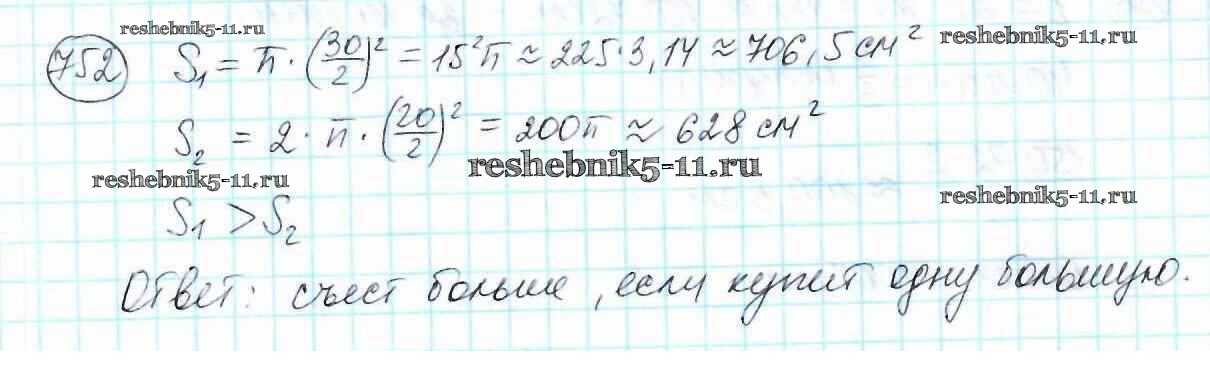 reshebnik5-11.ru
reshebnik5-11.ru
752 S₁ = π · (30/2)² = 15²π ≈ 225·3,14 ≈ 706,5 см²
S₂ = 2 · π · (20/2)² = 200π ≈ 628 см²
reshebnik5-11.ru
reshebnik5-11.ru
reshebnik5-11.ru
S₁ > S₂
Ответ: съест больше, если купит одну большую.